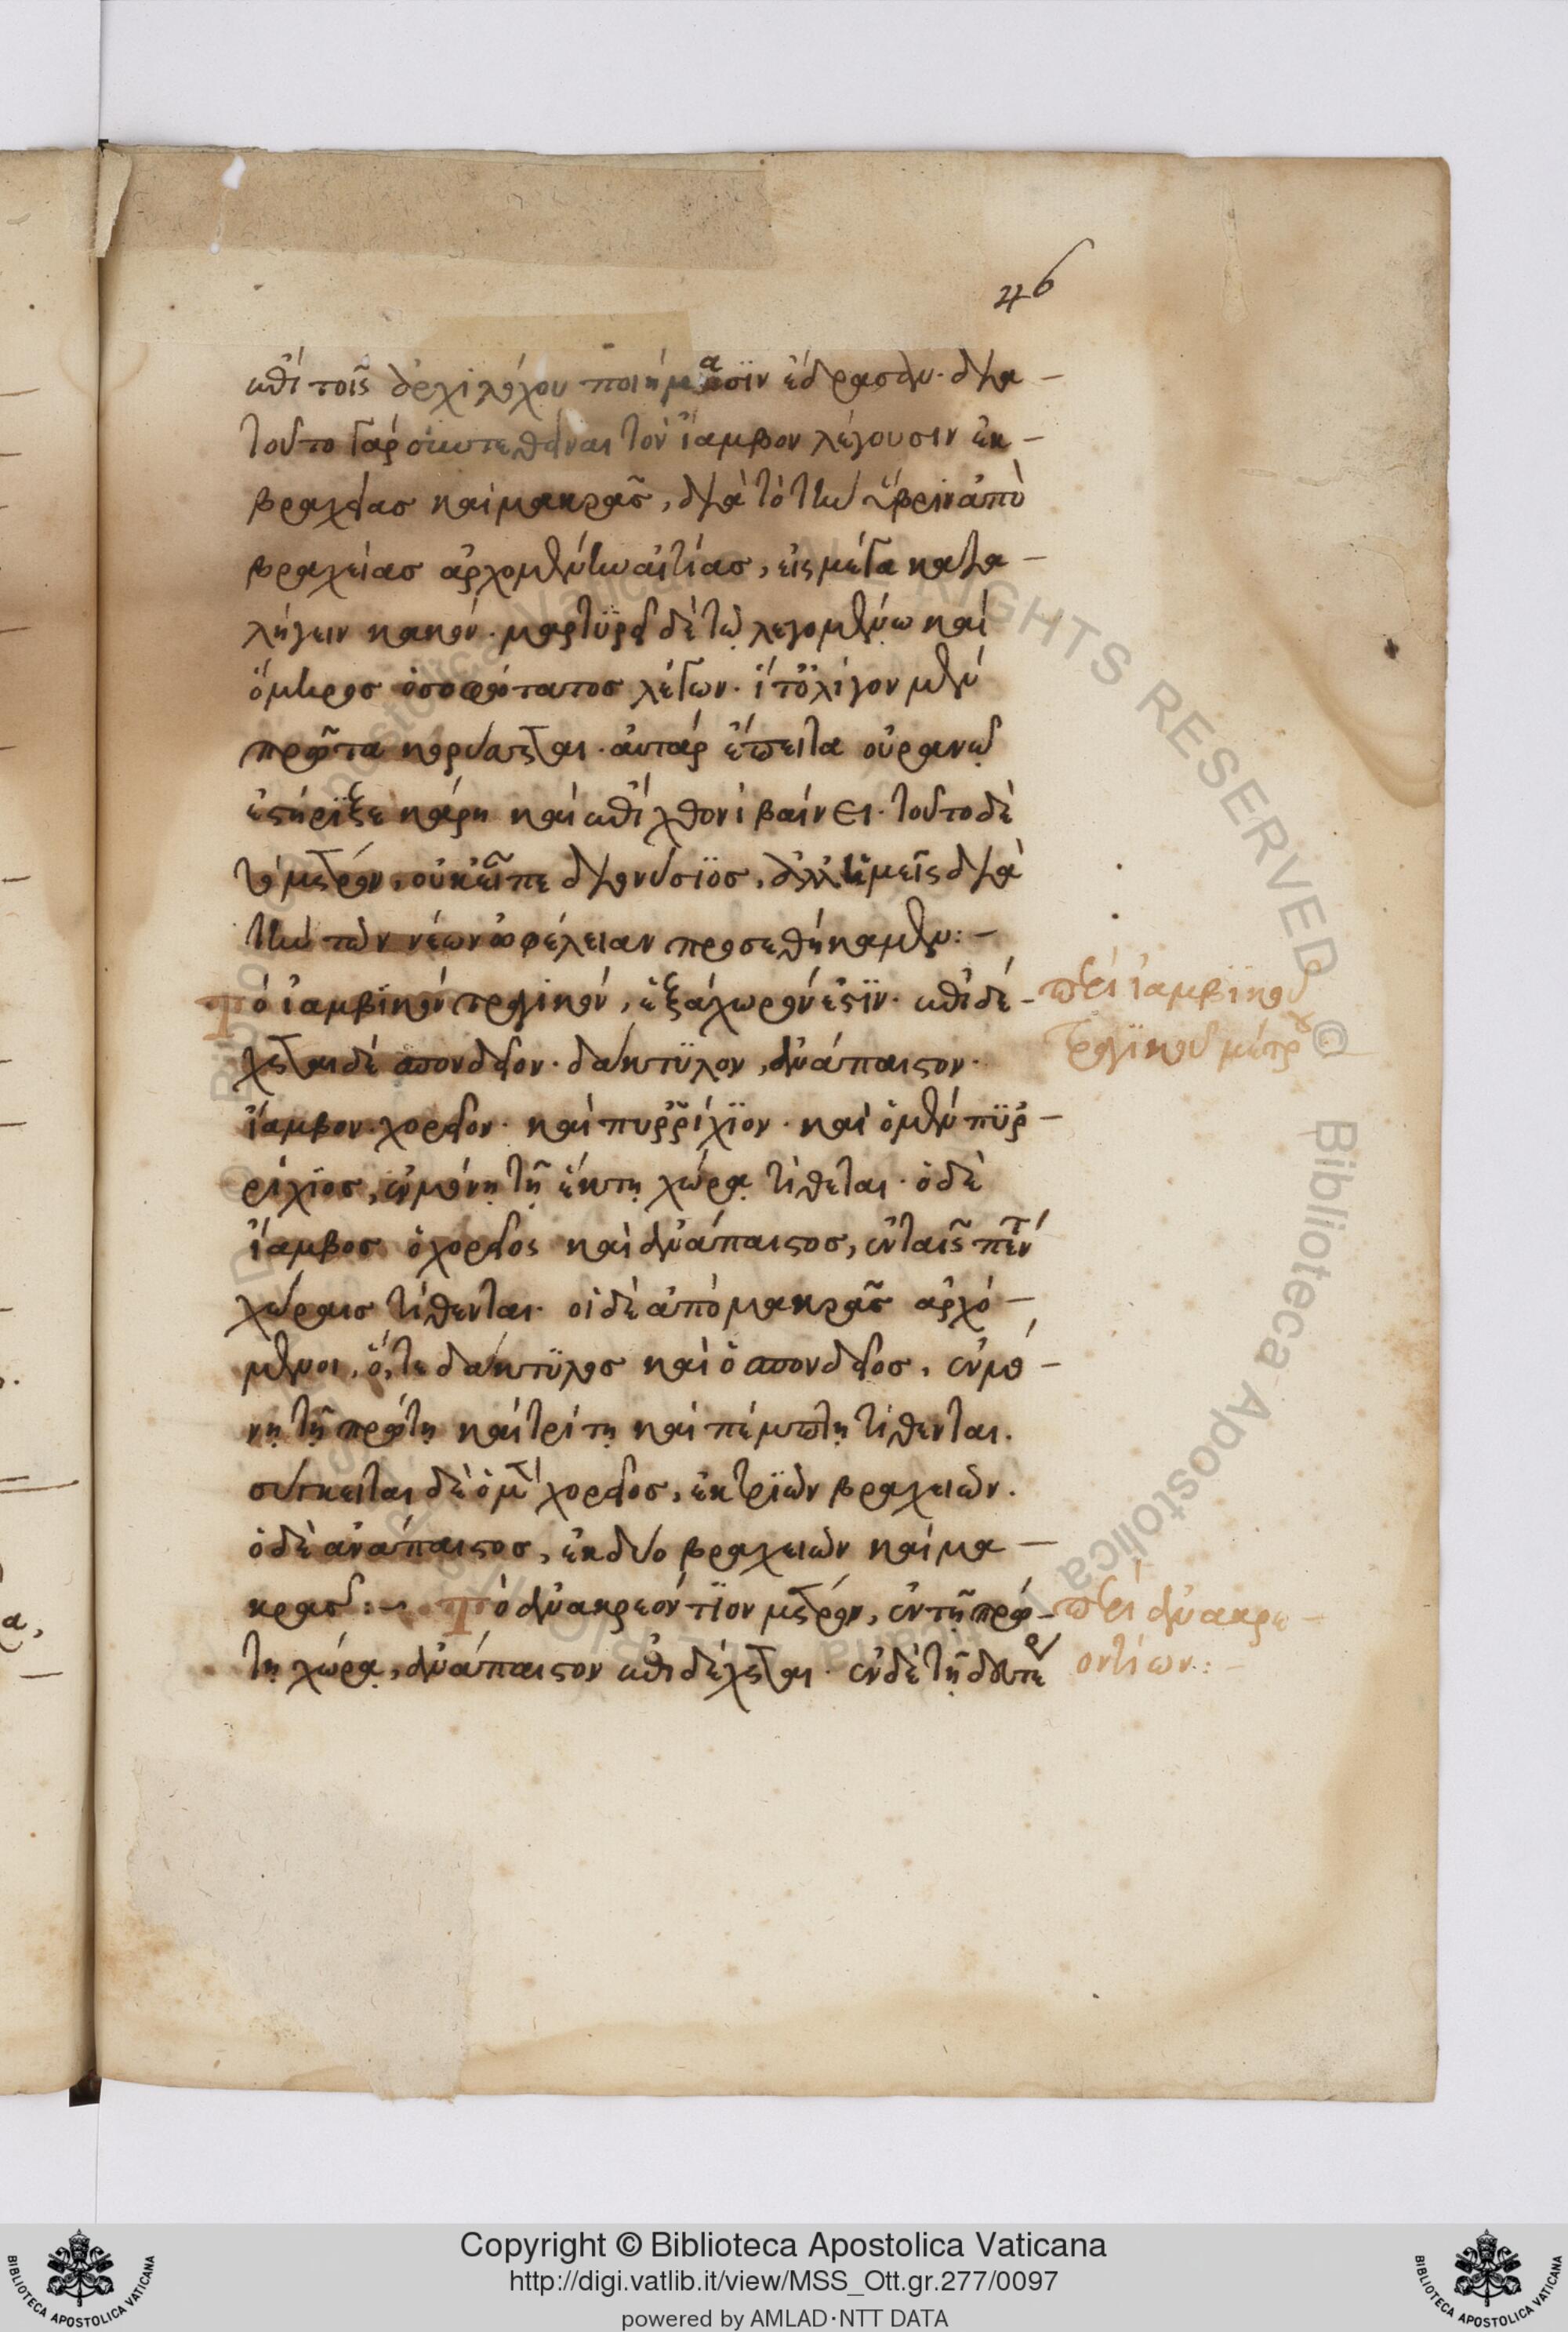 46
ἐπὶ τοῖς ἀρχιλόχου ποιήμασιν ἔδρασαν. διὰ
τοῦτο γὰρ συντεθῆναι τὸν ἴαμβον λέγουσιν ἐκ
βραχείας καὶ μακρᾶς, διὰ τὸ τὴν ὕβριν ἀπὸ
βραχείας ἀρχομένην αἰτίας, εἰς μέγα κατα
λήγειν κακόν. μαρτυρεῖ δὲ τῷ λεγομένῳ καὶ
ὅμηρος ὁ σοφώτατος λέγων. ἥτ' ὀλίγον μὲν
πρῶτα κορύσσεται. αὐτὰρ ἔπειτα οὐρανῷ
ἐστήριξε κάρη καὶ ἐπὶ χθονὶ βαίνει. τοῦτο δὲ
τὸ μέτρον, οὐκ εἶπε διονύσιος, ἀλλ' ἡμεῖς διὰ
τὴν τῶν νέων ὠφέλειαν προσεθήκαμεν:–
Τὸ ἰαμβικὸν τραγικὸν, ἑξάχωρόν ἐστιν. ἐπιδέ
περὶ ἰαμβικοῦ
χεται δὲ σπονδεῖον. δάκτυλον, ἀνάπαιστον.
τραγικοῦ μέτρου
ἴαμβον. χορεῖον. καὶ πυρρίχιον. καὶ ὁ μὲν πυρ
ρίχιος, ἐν μόνῃ τῇ ἕκτῃ χώρᾳ τίθεται. ὁ δὲ
ἴαμβος ὁ χορεῖος καὶ ἀνάπαιστος, ἐν ταῖς πέντε
χώραις τίθενται. οἱ δὲ ἀπὸ μακρᾶς ἀρχό
μενοι, ὅ,τε δάκτυλος καὶ ὁ σπονδεῖος, ἐν μό
νῃ τῇ πρώτῃ καὶ τρίτῃ καὶ πέμπτῃ τίθενται.
σύγκειται δὲ ὁ μὲν χορεῖος, ἐκ τριῶν βραχειῶν.
ὁ δὲ ἀνάπαιστος, ἐκ δύο βραχειῶν καὶ μα
κρᾶς:– Τὸ ἀνακρεόντιον μέτρον, ἐν τῇ πρώ
περὶ ἀνακρε
τῃ χώρᾳ, ἀνάπαιστον ἐπιδέχεται. ἐν δὲ τῇ δευτέρᾳ
οντίων:–
Copyright © Biblioteca Apostolica Vaticana
http://digi.vatlib.it/view/MSS_Ott.gr.277/0097
powered by AMLAD·NTT DATA
BIBLIOTECA APOSTOLICA VATICANA
BIBLIOTECA APOSTOLICA VATICANA